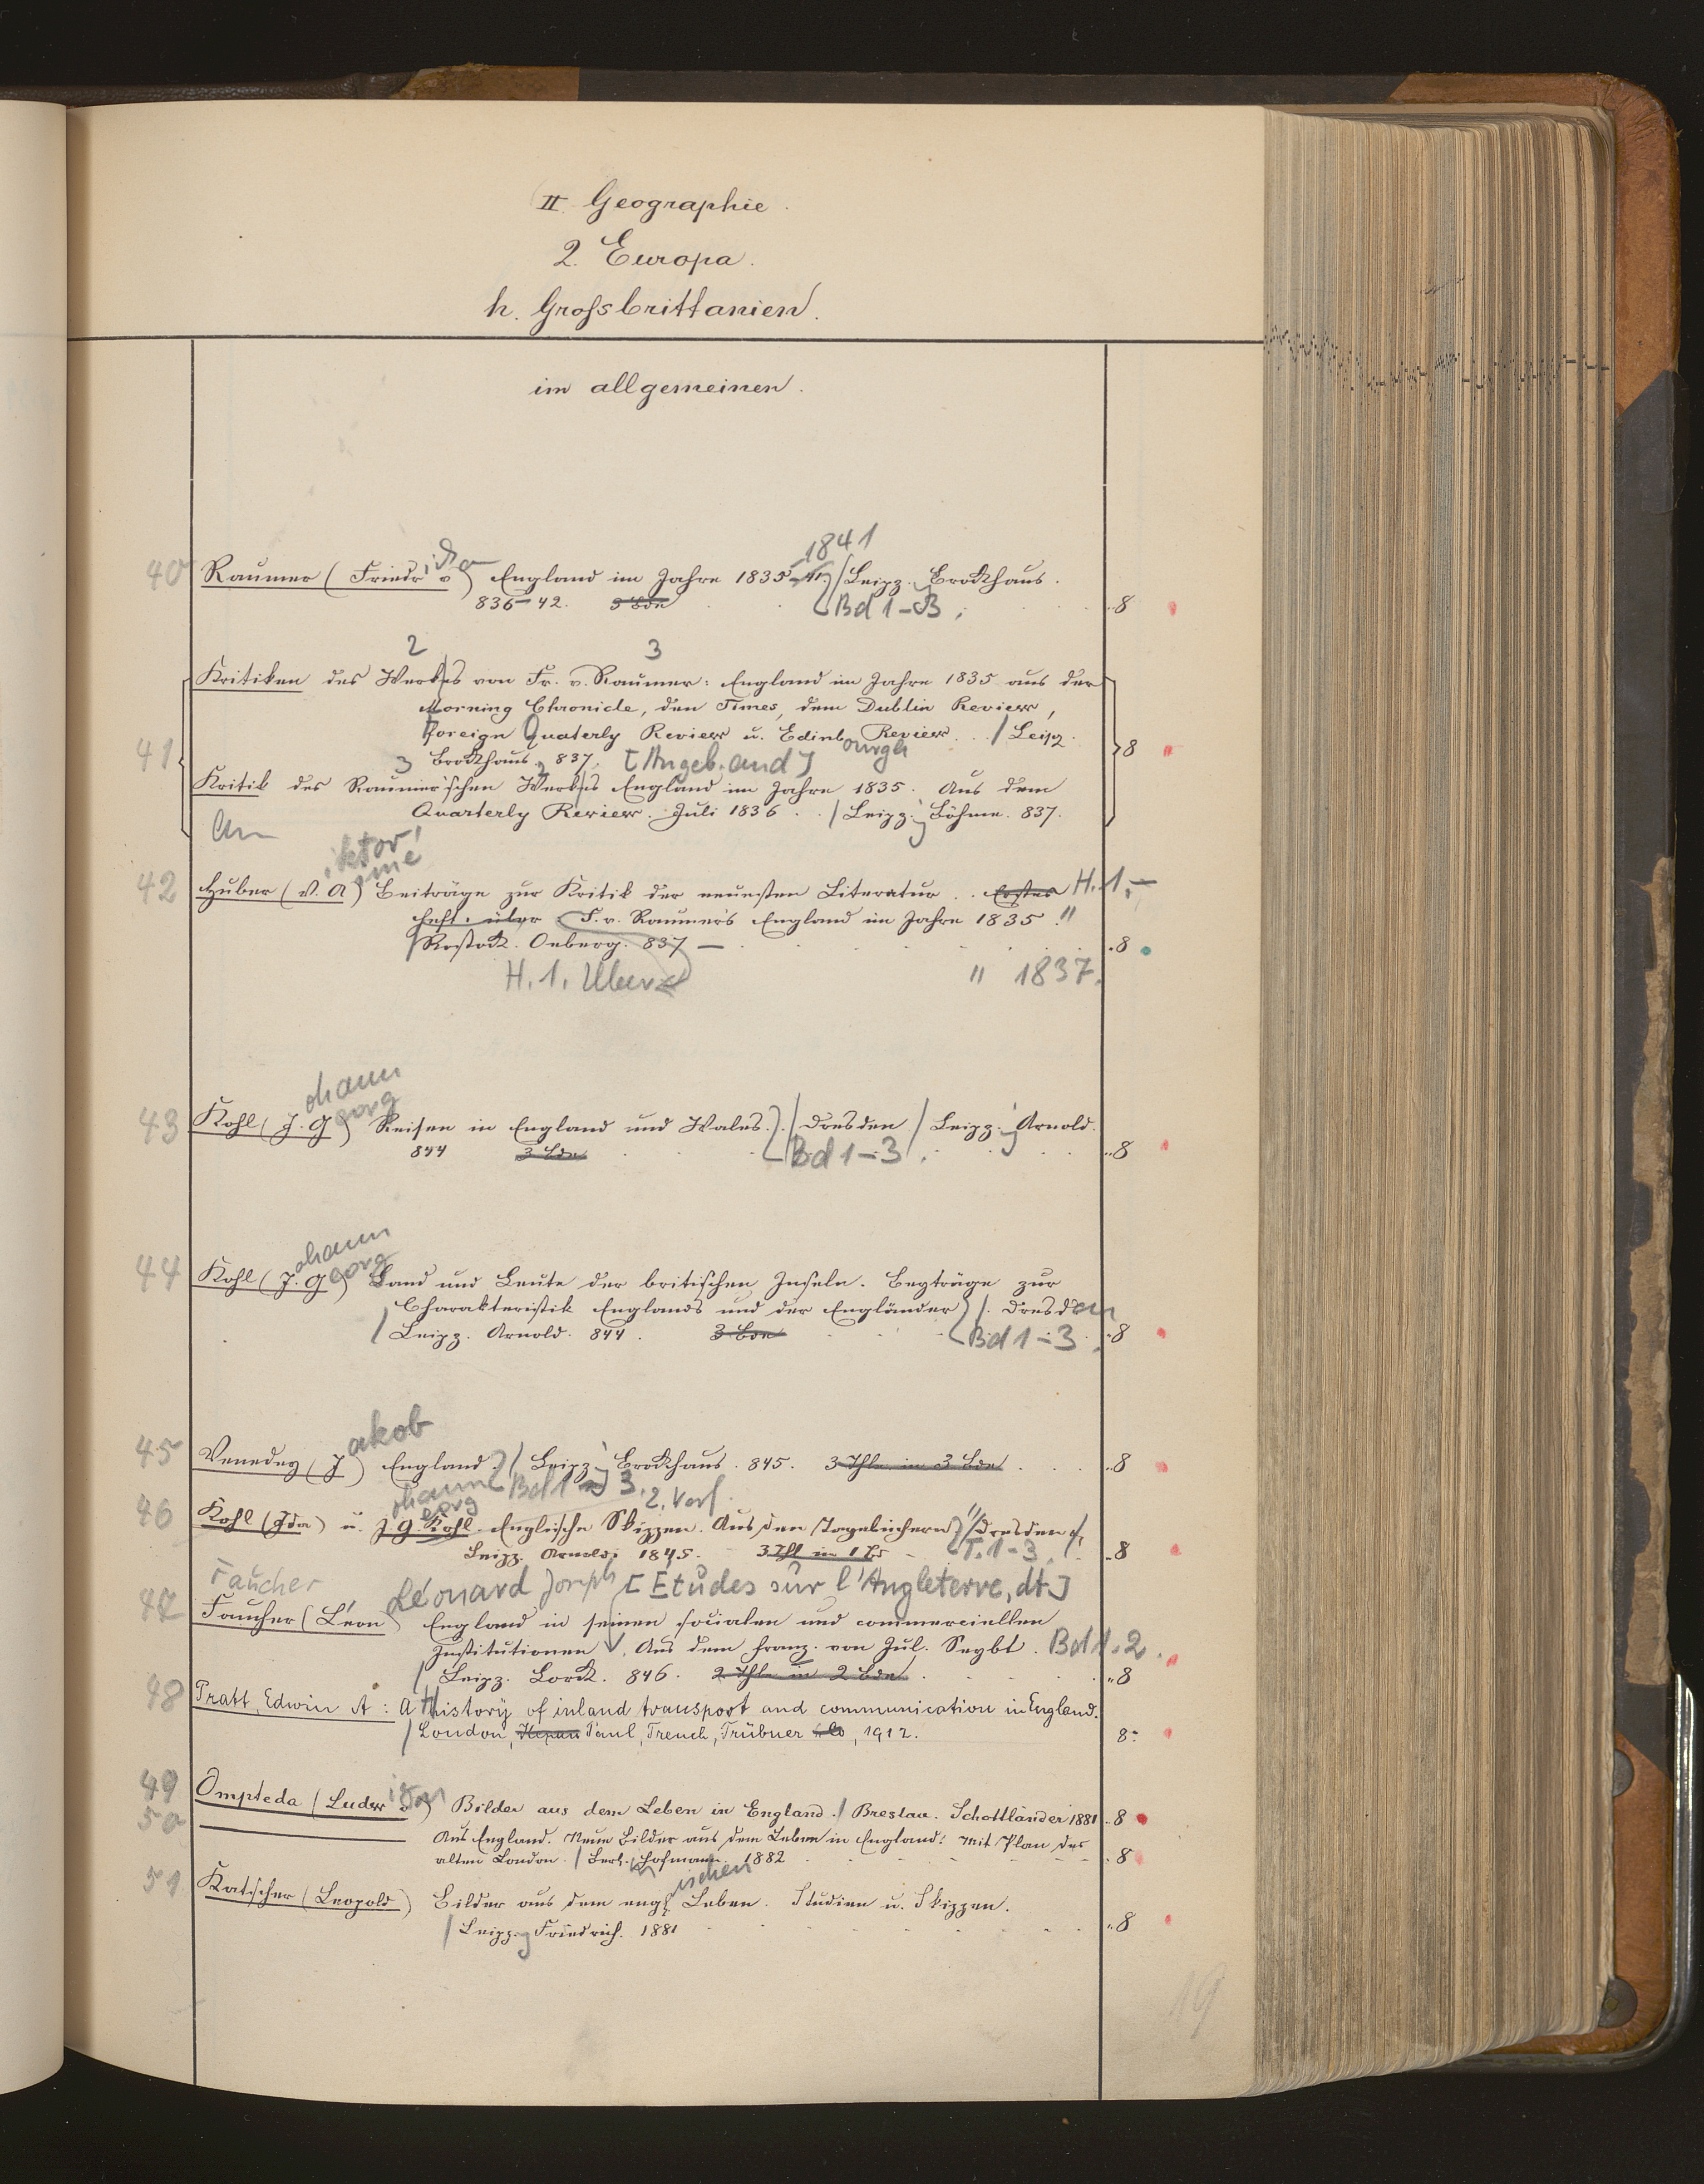 II. Geographie.
2. Europa.
h. Grossbrittanien.
im allgemeinen.
1841
40 Raumer (Friedr. v) England im Jahre 1835-41. / Leipz. Brockhaus.
836-42. 3 Bde Bd 1-3. 8
2 3
Kritiken des Werkes von Fr. v. Raumer: England im Jahre 1835 aus der
Morning Chronicle, den Times, dem Dublin Review,
Foreign Quaterly Review u. Edinbourgh Review. / Leipz.
41 Brockhaus. 837. [Angeb. and] 8
Kritik des Raumer'schen Werkes England im Jahre 1835. Aus dem
Quarterly Review. Juli 1836 . . / Leipz. Böhme. 837.
an
iktor
ime
42 Huber (V. A) Beiträge zur Kritik der neuesten Literatur. . Erstes H. 1.
Heft. über F. v. Raumer's England im Jahre 1835."
/ Rostock. Oeberg. 837 8
H. 1. Über " 1837.
ohann
eorg
43 Kohl (J. G) Reisen in England und Wales. / Dresden / Leipz. Arnold.
844 3 Bde Bd 1-3. 8
ohann
eorg
44 Kohl (J. G) Land und Leute der britischen Inseln. Beyträge zur
Charakteristik Englands und der Engländer / Dresden
/ Leipz. Arnold. 844. 3 Bde Bd 1-3. 8
akob
45 Venedey (J) England. / Leipz. Brockhaus. 845. 3 Thle in 3 Bde 8
Bd 1-3.
ohann
eorg 2. Verf.
46 Kohl (Ida) u. J. G. Kohl. Englische Skizzen. Aus den Tagebüchern / Dresden /
Leipz. Arnold. 1845. 3 Thl in 1 Bd T. 1-3. 8
Faucher Léonard Joseph [Etudes sur l'Angleterre, dt.]
47 Faucher (Léon) England in seinen socialen und commerciellen
Institutionen. Aus dem Franz. von Jul. Seybt. Bd 1.2.
/ Leipz. Lorck. 846. 2 Thle in 2 Bde 8
48 Pratt, Edwin A: A History of inland transport and communication in England.
/ London, Kegan Paul, Trench, Trübner & Co, 1912. 8:
49 Ompteda (Ludwig v) Bilder aus dem Leben in England. / Breslau. Schottländer 1881 8
50 Aus England. Neue Bilder aus dem Leben in England. Mit Plan des
alten London. / Berl. Hofmann. 1882 8
ischen
51 Katscher (Leopold) Bilder aus dem engl. Leben. Studien u. Skizzen.
/ Leipz. Friedrich. 1881 8
19